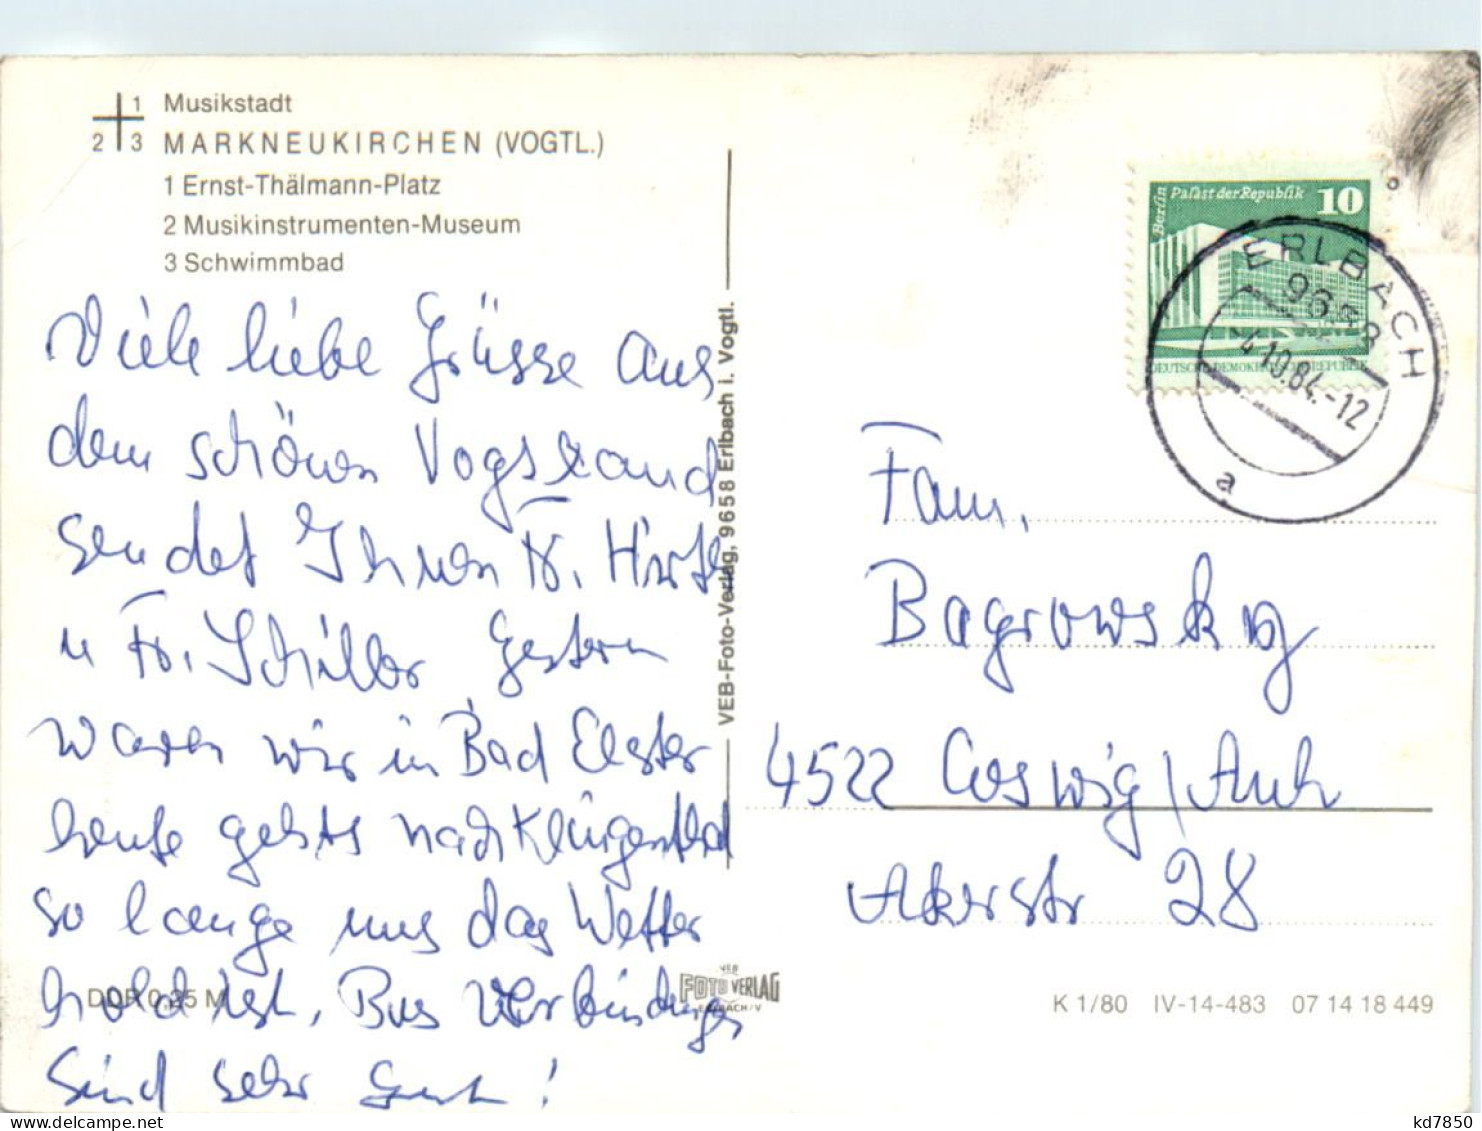 1 Musikstadt
2 3 MARKNEUKIRCHEN (VOGTL.)
1 Ernst-Thälmann-Platz
2 Musikinstrumenten-Museum
3 Schwimmbad
Viele liebe Grüsse aus
dem schönen Vogtland
sendet Ihnen Fr. Hirte
u Fr. Schiller Gestern
waren wir in Bad Elster
heute gehts nach Klingenthal
so lange uns das Wetter
hold ist, Bus Verbindungen
sind sehr gut!
DDR 0,25 M
VEB-Foto-Verlag, 9658 Erlbach i. Vogtl.
VEB
FOTO VERLAG
ERLBACH/V
Berlin Palast der Republik 10
DEUTSCHE DEMOKRATISCHE REPUBLIK
ERLBACH
-4.10.84.-12
a
Fam.
Bagrowsky
4522 Coswig/Anh
Akerstr 28
K 1/80 IV-14-483 07 14 18 449
kd7850